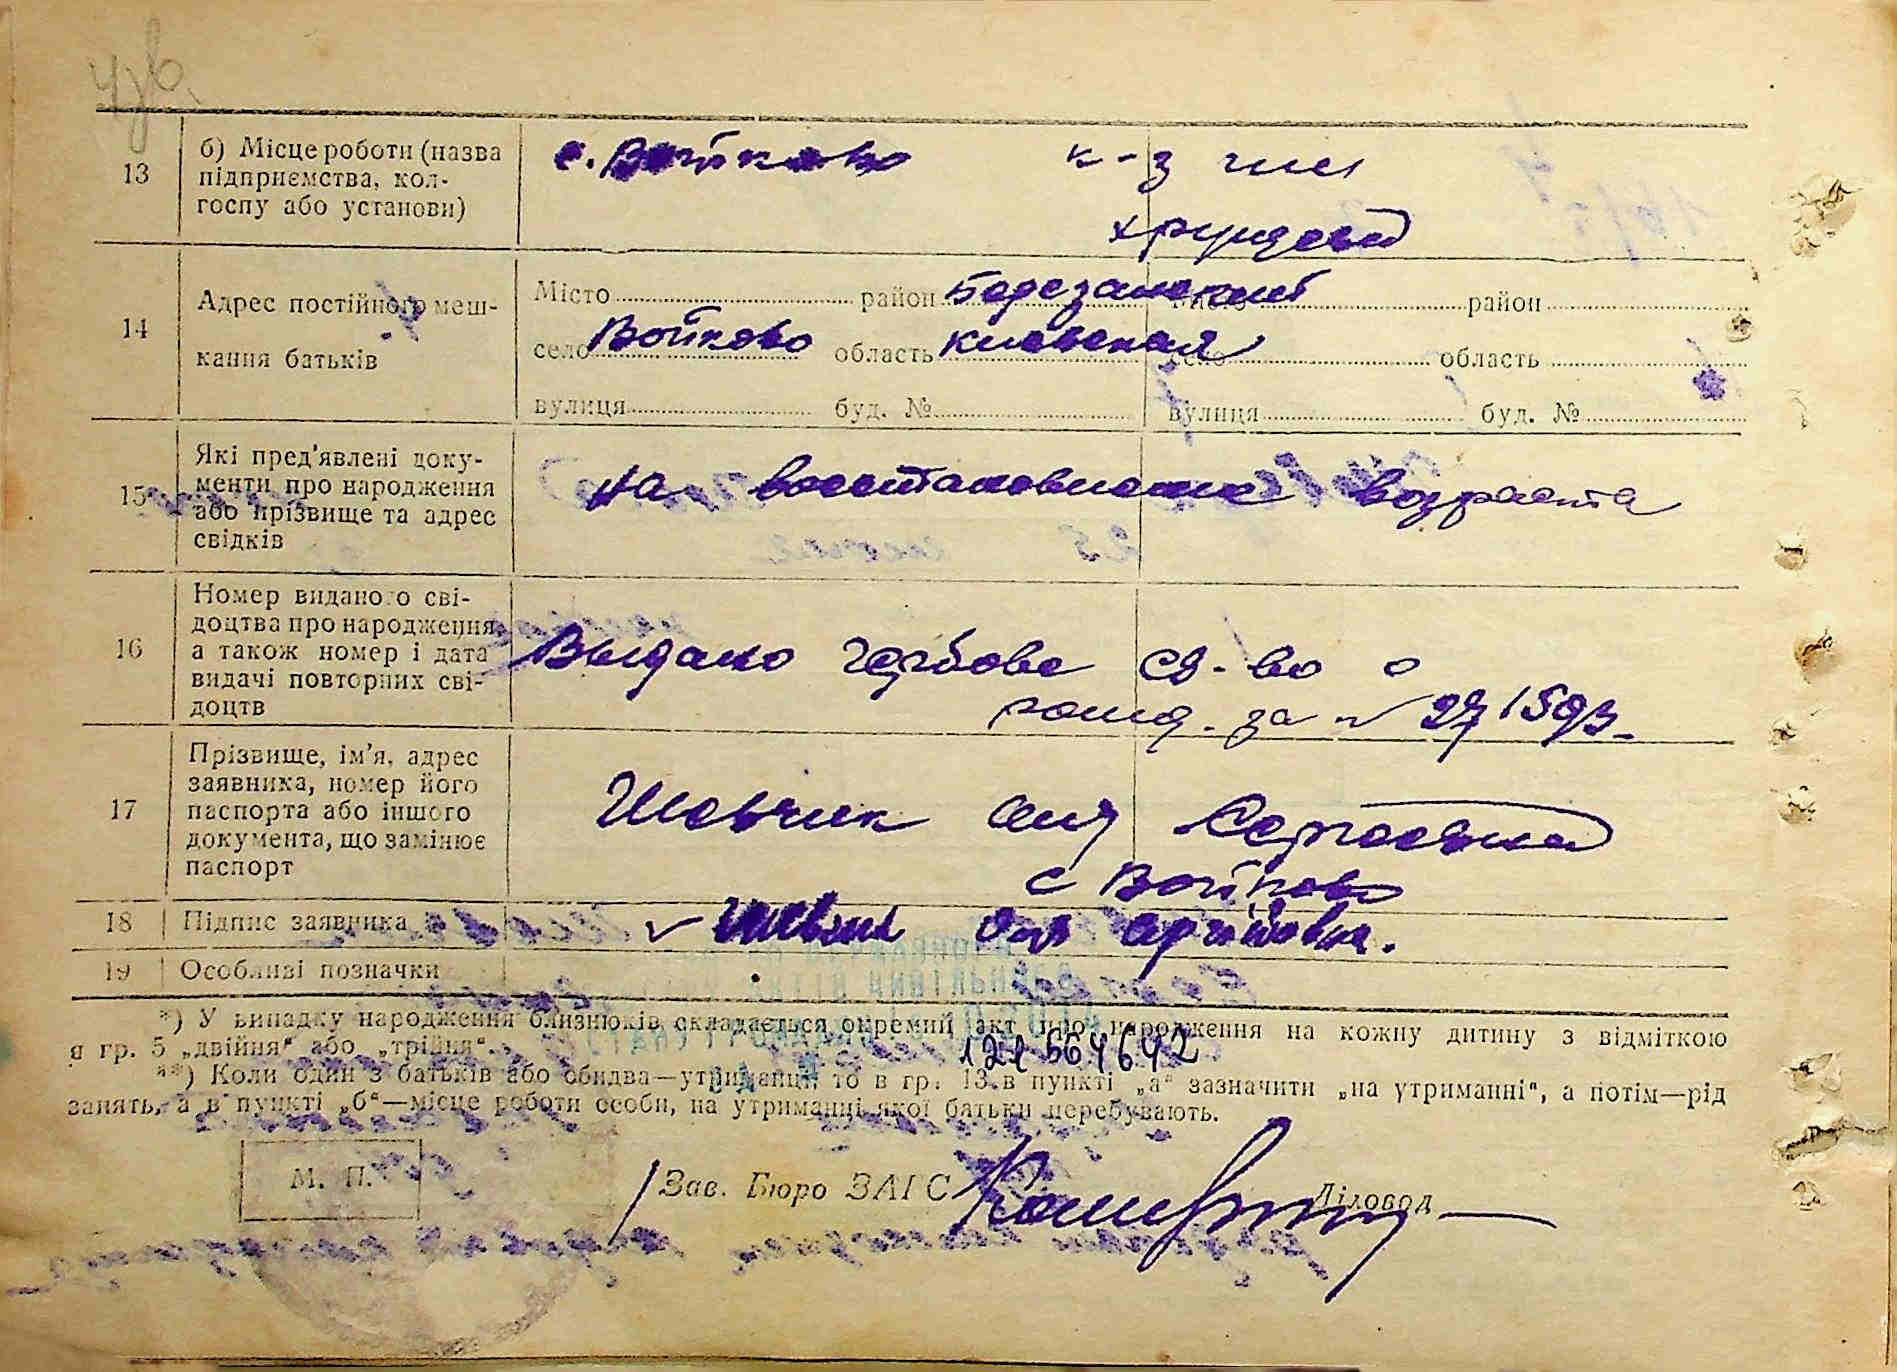 13
б) Місце роботи (назва
підприємства, кол-
госпу або установи)
с. Войково к-з
14
Адрес постійного меш-
кання батьків
Місто район Березанский Місто район
село Войково область киевская село область
вулиця буд. № вулиця буд. №
15
Які пред'явлені доку-
менти про народження
або прізвище та адрес
свідків
на восстановление возраста
16
Номер виданого сві-
доцтва про народження,
а також номер і дата
видачі повторних сві-
доцтв
Выдано гербове св-во о
рожд. за №
17
Прізвище, ім'я, адрес
заявника, номер його
паспорта або іншого
документа, що замінює
паспорт
Шевчик Сергеевна
с Войково
18 Підпис заявника
19 Особливі позначки
*) У випадку народження близнюків складається окремий акт про народження на кожну дитину з відміткою
в гр. 5 „двійня“ або „трійня“.
121564642
**) Коли один з батьків або обидва—утриманці, то в гр. 13 в пункті „а“ зазначити „на утриманні“, а потім—рід
занять, а в пункті „б“—місце роботи особи, на утриманні якої батьки перебувають.
М. П.
Зав. Бюро ЗАГС
Діловод